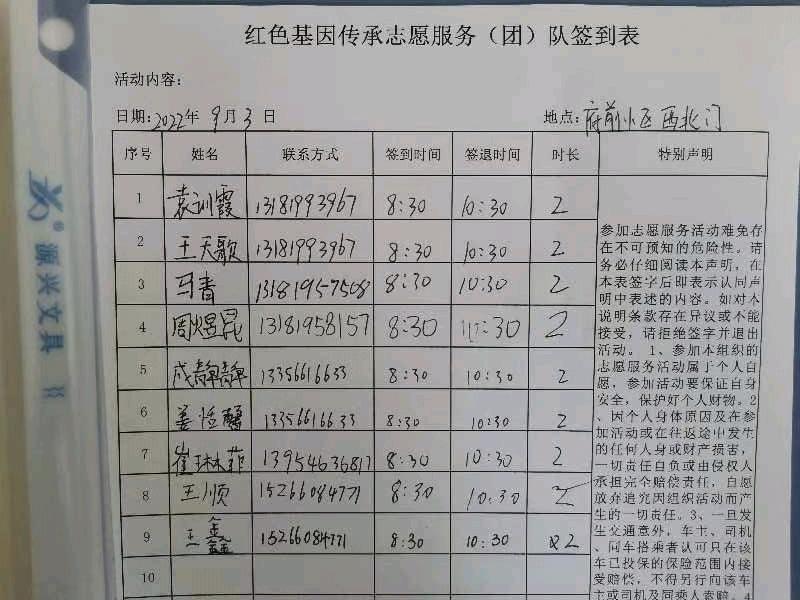 红色基因传承志愿服务（团）队签到表
活动内容：
日期：2022年 9月 3 日 地点：府前小区西北门
序号 姓名 联系方式 签到时间 签退时间 时长 特别声明
1 袁训霞 13181993967 8:30 10:30 2
2 王天歌 13181993967 8:30 10:30 2
3 马青 13181957508 8:30 10:30 2
4 周煜昆 13181958157 8:30 10:30 2
5 成静静 13356616633 8:30 10:30 2
6 姜恒馨 13356616633 8:30 10:30 2
7 崔琳菲 13954636817 8:30 10:30 2
8 王顺 15266084771 8:30 10:30 2
9 王鑫 15266084771 8:30 10:30 2
10
参加志愿服务活动难免存
在不可预知的危险性。请
务必仔细阅读本声明，在
本表签字后即表示认同声
明中表述的内容。如对本
说明条款存在异议或不能
接受，请拒绝签字并退出
活动。 1、参加本组织的
志愿服务活动属于个人自
愿，参加活动要保证自身
安全，保护好个人财物。2
、因个人身体原因及在参
加活动或在往返途中发生
的任何人身或财产损害，
一切责任自负或由侵权人
承担完全赔偿责任，自愿
放弃追究因组织活动而产
生的一切责任。3、一旦发
生交通意外，车主、司机
、同车搭乘者认可只在该
车已投保的保险范围内接
受赔偿，不得另行向该车
主或司机及同乘人索赔。4
源兴文具